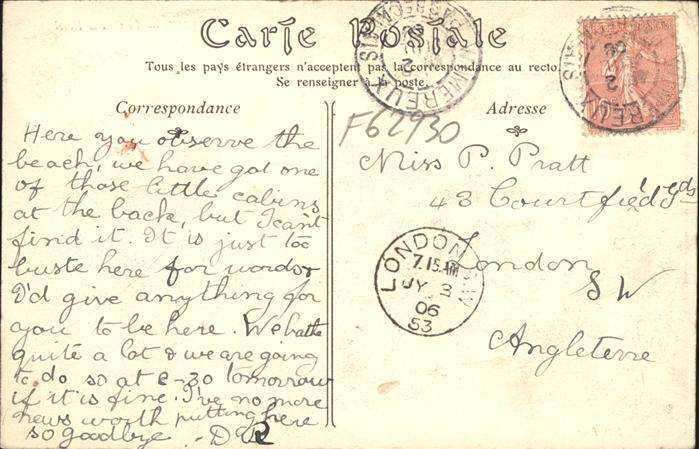 Carte Postale
Tous les pays étrangers n'acceptent pas la correspondance au recto.
Se renseigner à la poste.
Correspondance
Here you observe the
beach, we have got one
of those little cabins
at the back, but I can't
find it. It is just too
buste here for words
I'd give anything for
you to be here. We bathe
quite a lot & we are going
to do so at 6-30 tomorrow
if it is fine. I've no more
news worth putting here
so goodbye. - D
Adresse
F62930
Miss P. Pratt
43 Courtfiéd Gds
London
SW
Angleterre
LONDON S.W
7.15 AM
JY 3
06
53
WIMEREUX
2